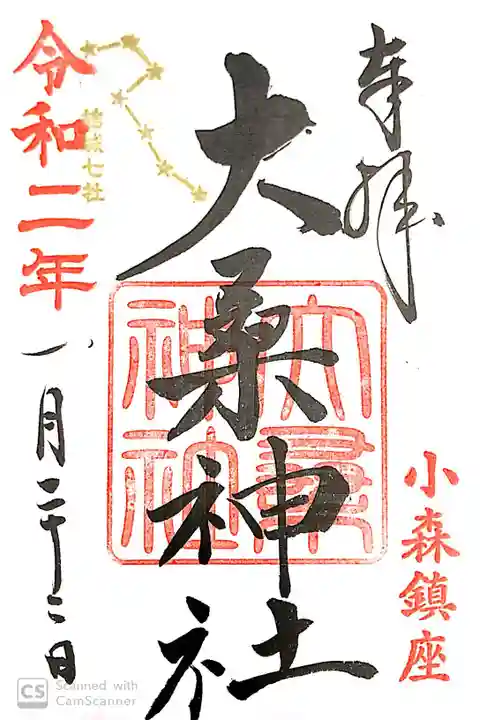 奉拝
小森鎮座
大桑神社
大桑
神社
結城七社
令和二年
一月二十二日
CS Scanned with
CamScanner